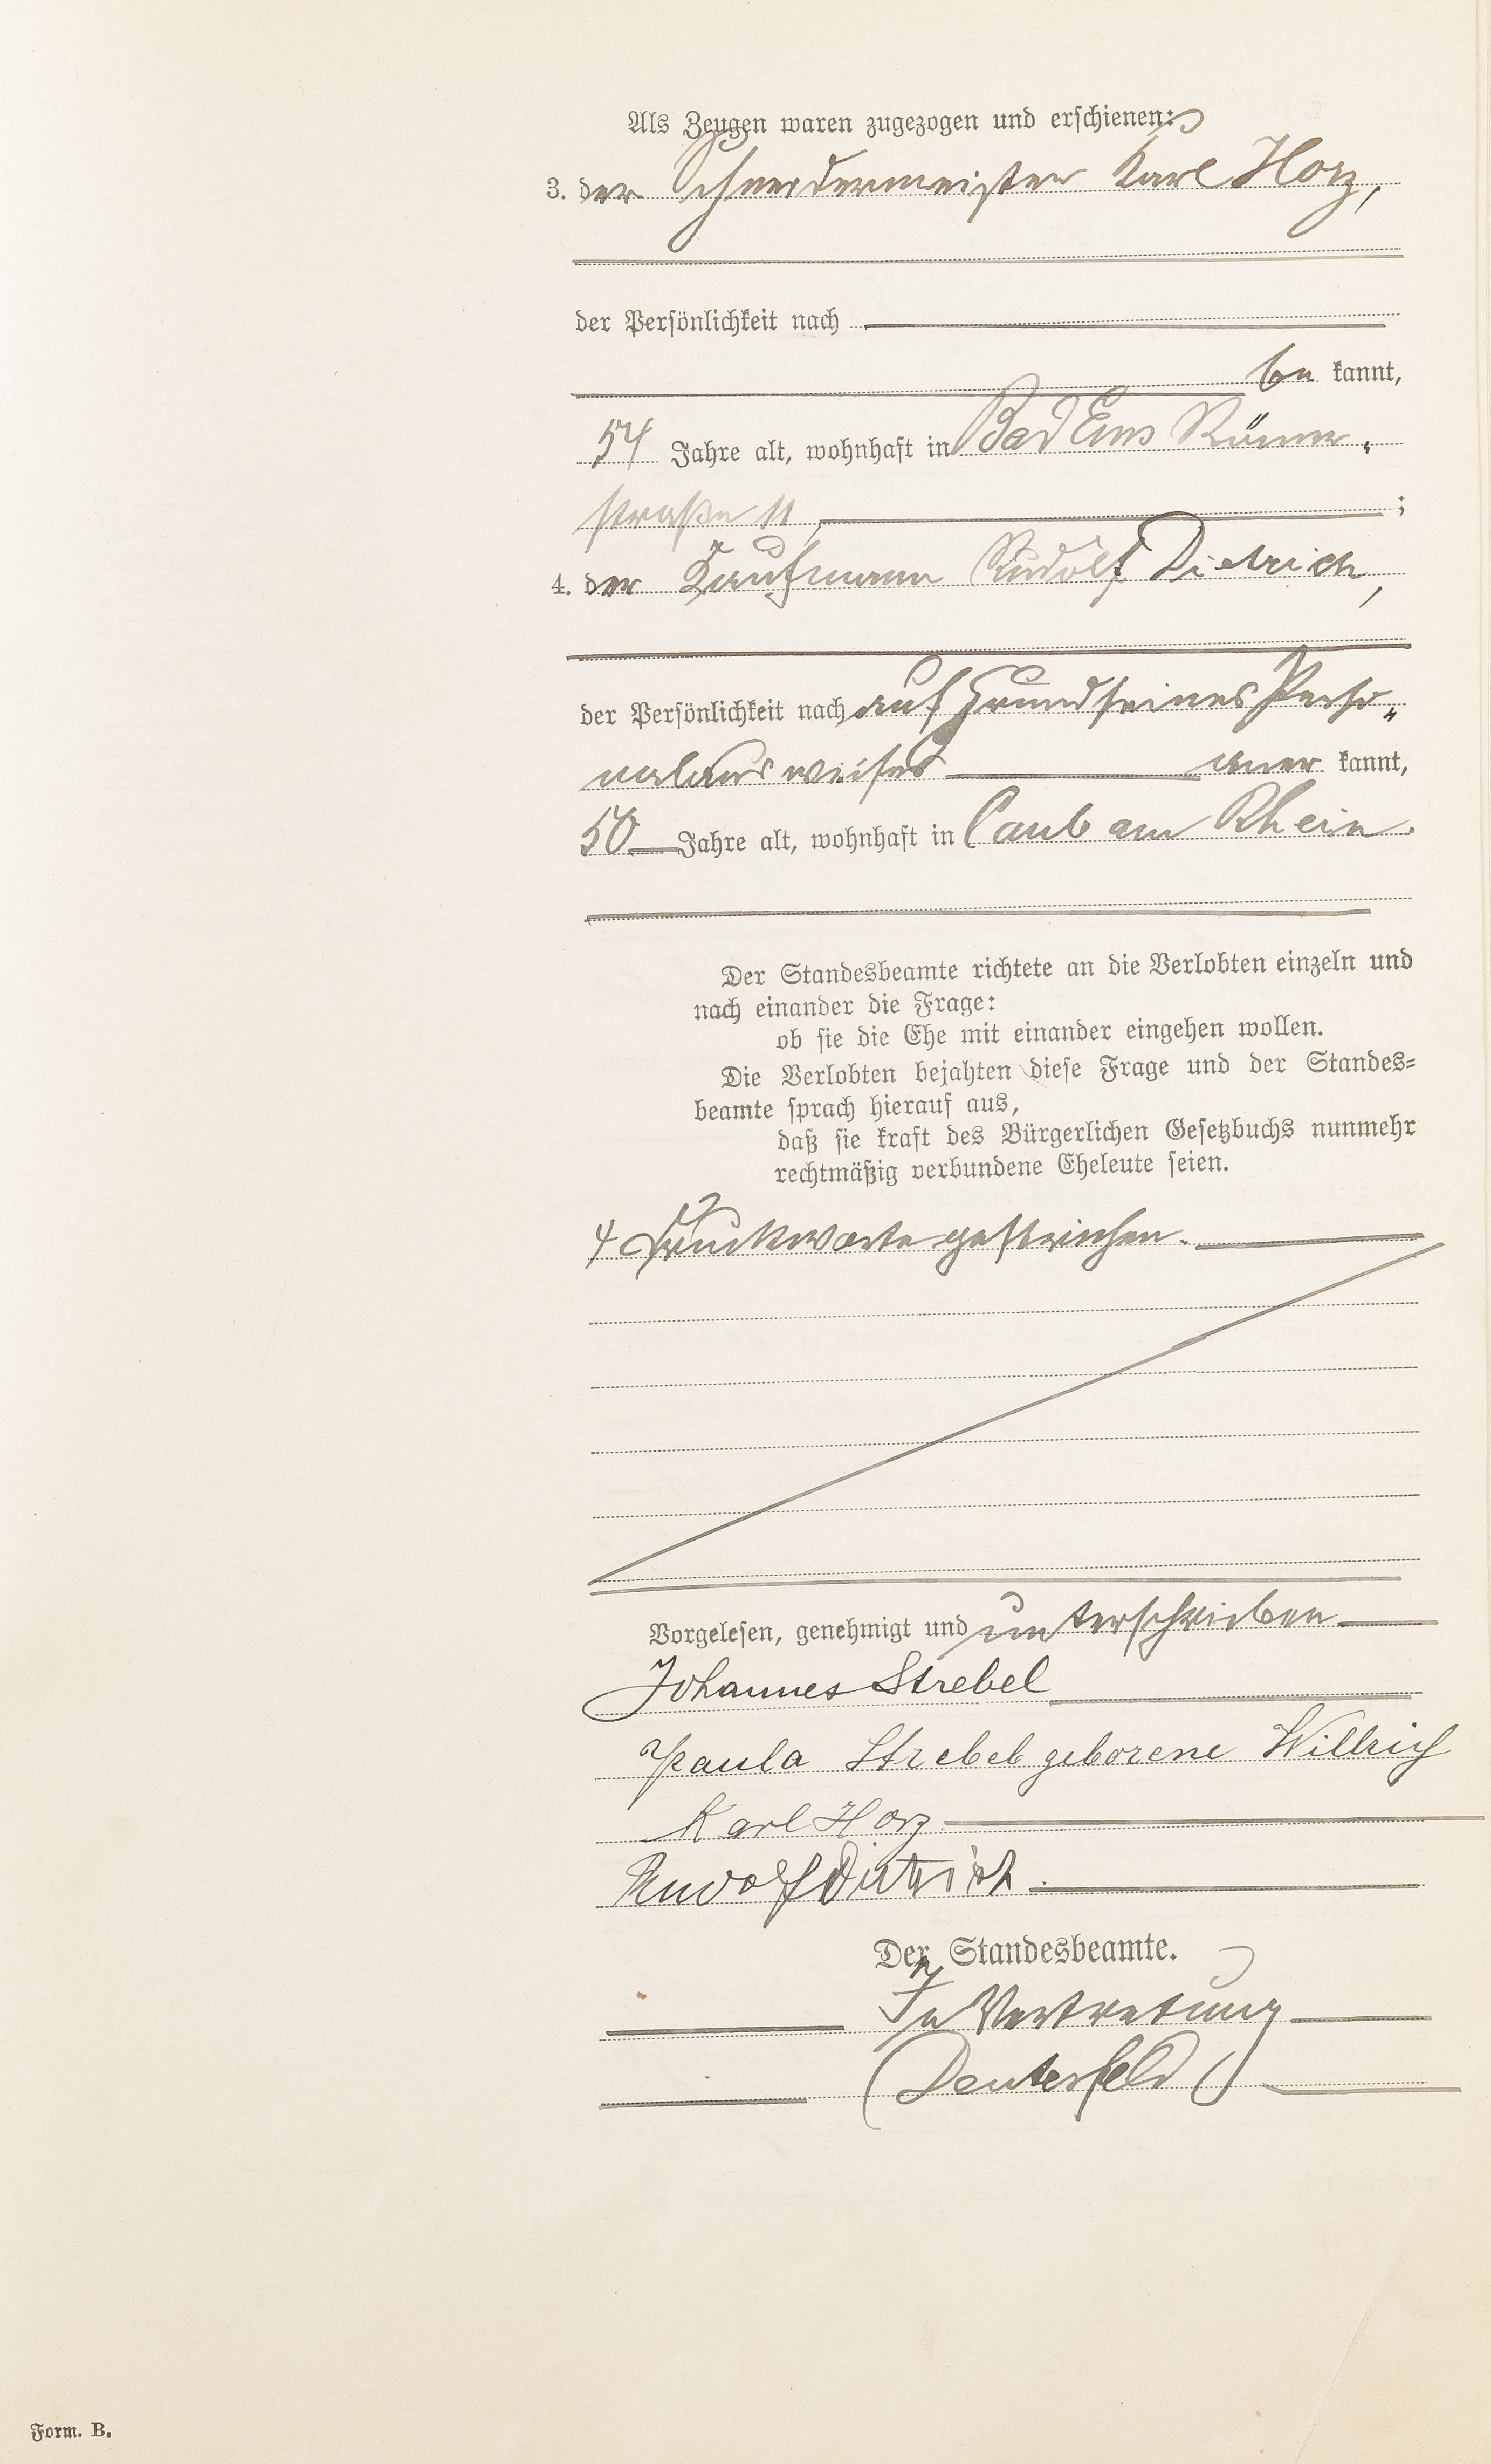 Als Zeugen waren zugezogen und erschienen:
3. der Schneidermeister Karl Horz,
der Persönlichkeit nach
be kannt,
54 Jahre alt, wohnhaft in Bad Ems Römer-
straße 11 ;
4. der Kaufmann Rudolf Dietrich,
der Persönlichkeit nach auf Grund seines Perso-
nalausweises aner kannt,
50 Jahre alt, wohnhaft in Caub am Rhein.
Der Standesbeamte richtete an die Verlobten einzeln und
nach einander die Frage:
ob sie die Ehe mit einander eingehen wollen.
Die Verlobten bejahten diese Frage und der Standes-
beamte sprach hierauf aus,
daß sie kraft des Bürgerlichen Gesetzbuchs nunmehr
rechtmäßig verbundene Eheleute seien.
4 Druckworte gestrichen.
Vorgelesen, genehmigt und unterschrieben
Johannes Strebel
Paula Strebel geborene Willrich
Karl Horz
Rudolf Dietrich.
Der Standesbeamte.
In Vertretung
(Deuterfeld)
Form. B.